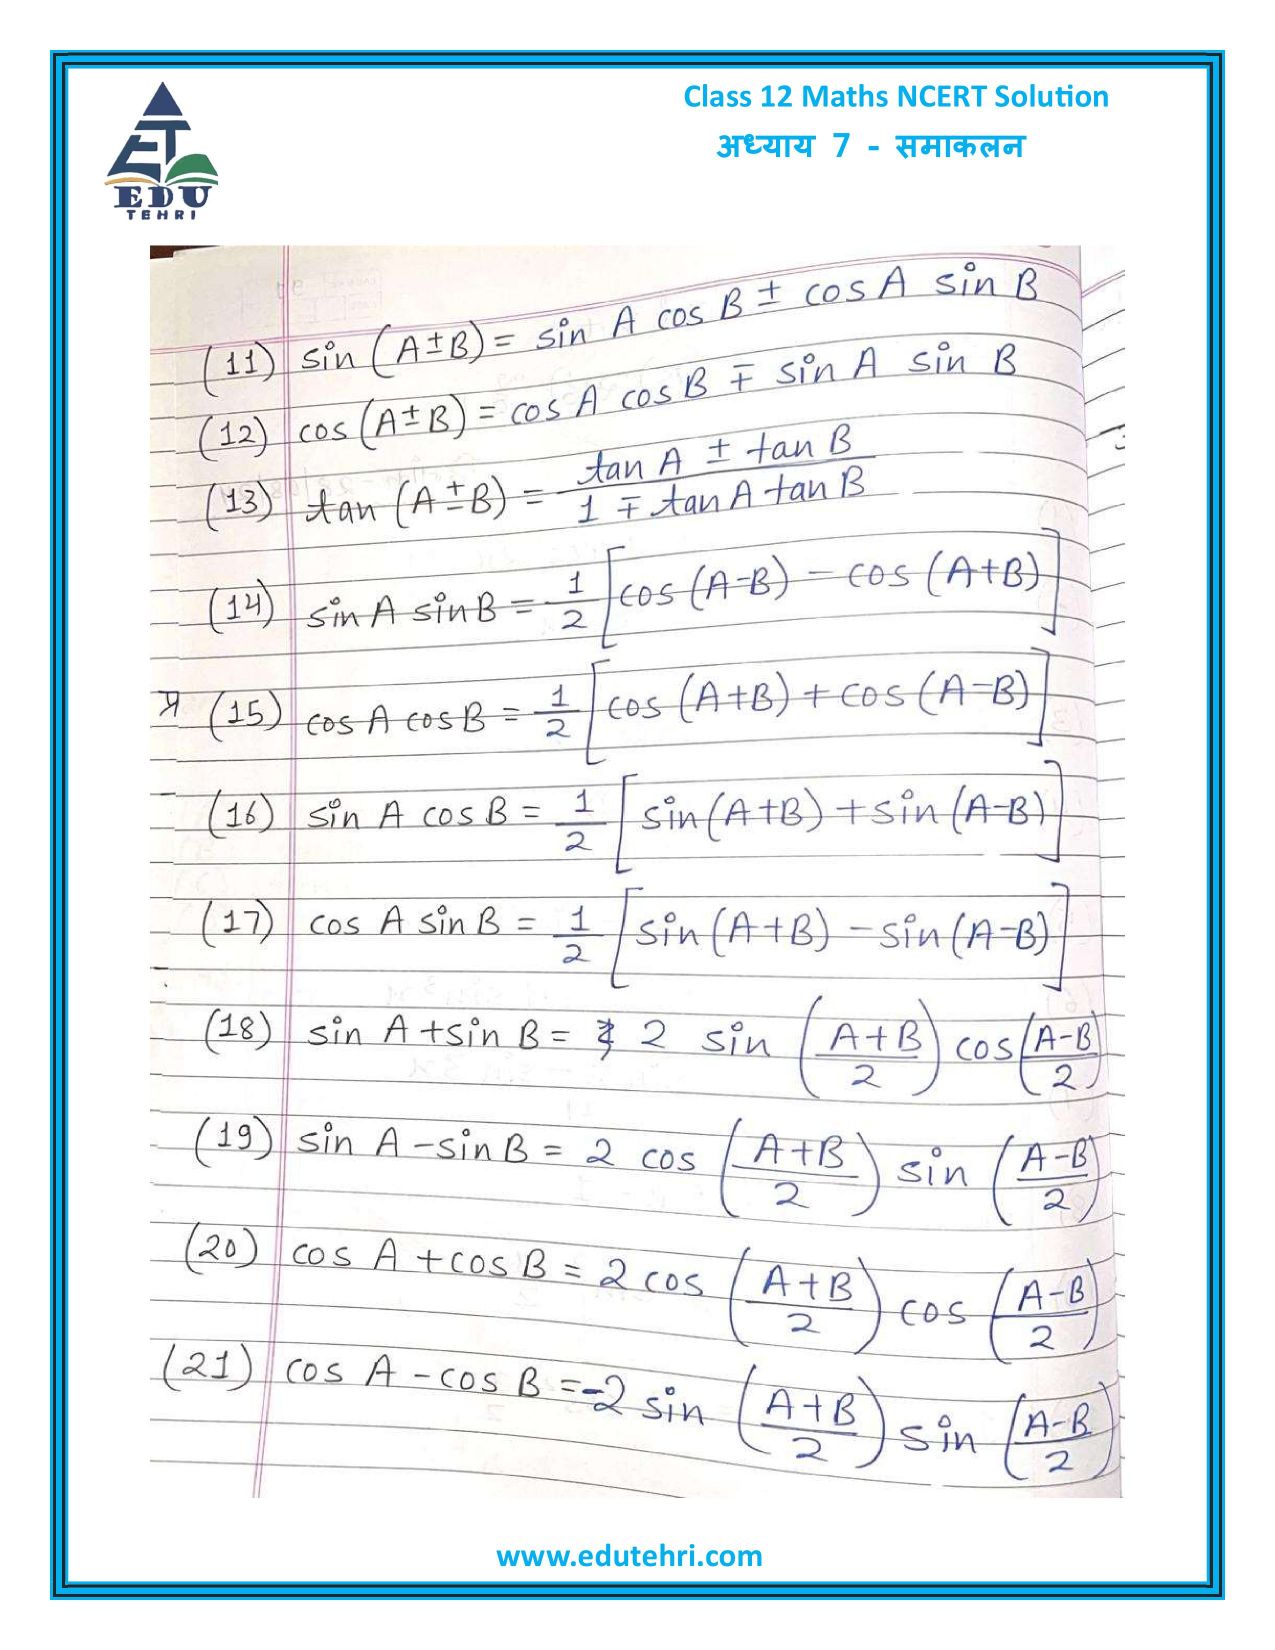 EDU
TEHRI
Class 12 Maths NCERT Solution
अध्याय 7 - समाकलन
(11) sin (A±B) = sin A cos B ± cos A sin B
(12) cos (A±B) = cos A cos B ∓ sin A sin B
(13) tan (A±B) = (tan A ± tan B) / (1 ∓ tan A tan B)
(14) sin A sin B = 1/2 [cos (A-B) - cos (A+B)]
प्र (15) cos A cos B = 1/2 [cos (A+B) + cos (A-B)]
(16) sin A cos B = 1/2 [sin (A+B) + sin (A-B)]
(17) cos A sin B = 1/2 [sin (A+B) - sin (A-B)]
(18) sin A + sin B = 2 sin ((A+B)/2) cos ((A-B)/2)
(19) sin A - sin B = 2 cos ((A+B)/2) sin ((A-B)/2)
(20) cos A + cos B = 2 cos ((A+B)/2) cos ((A-B)/2)
(21) cos A - cos B = -2 sin ((A+B)/2) sin ((A-B)/2)
www.edutehri.com